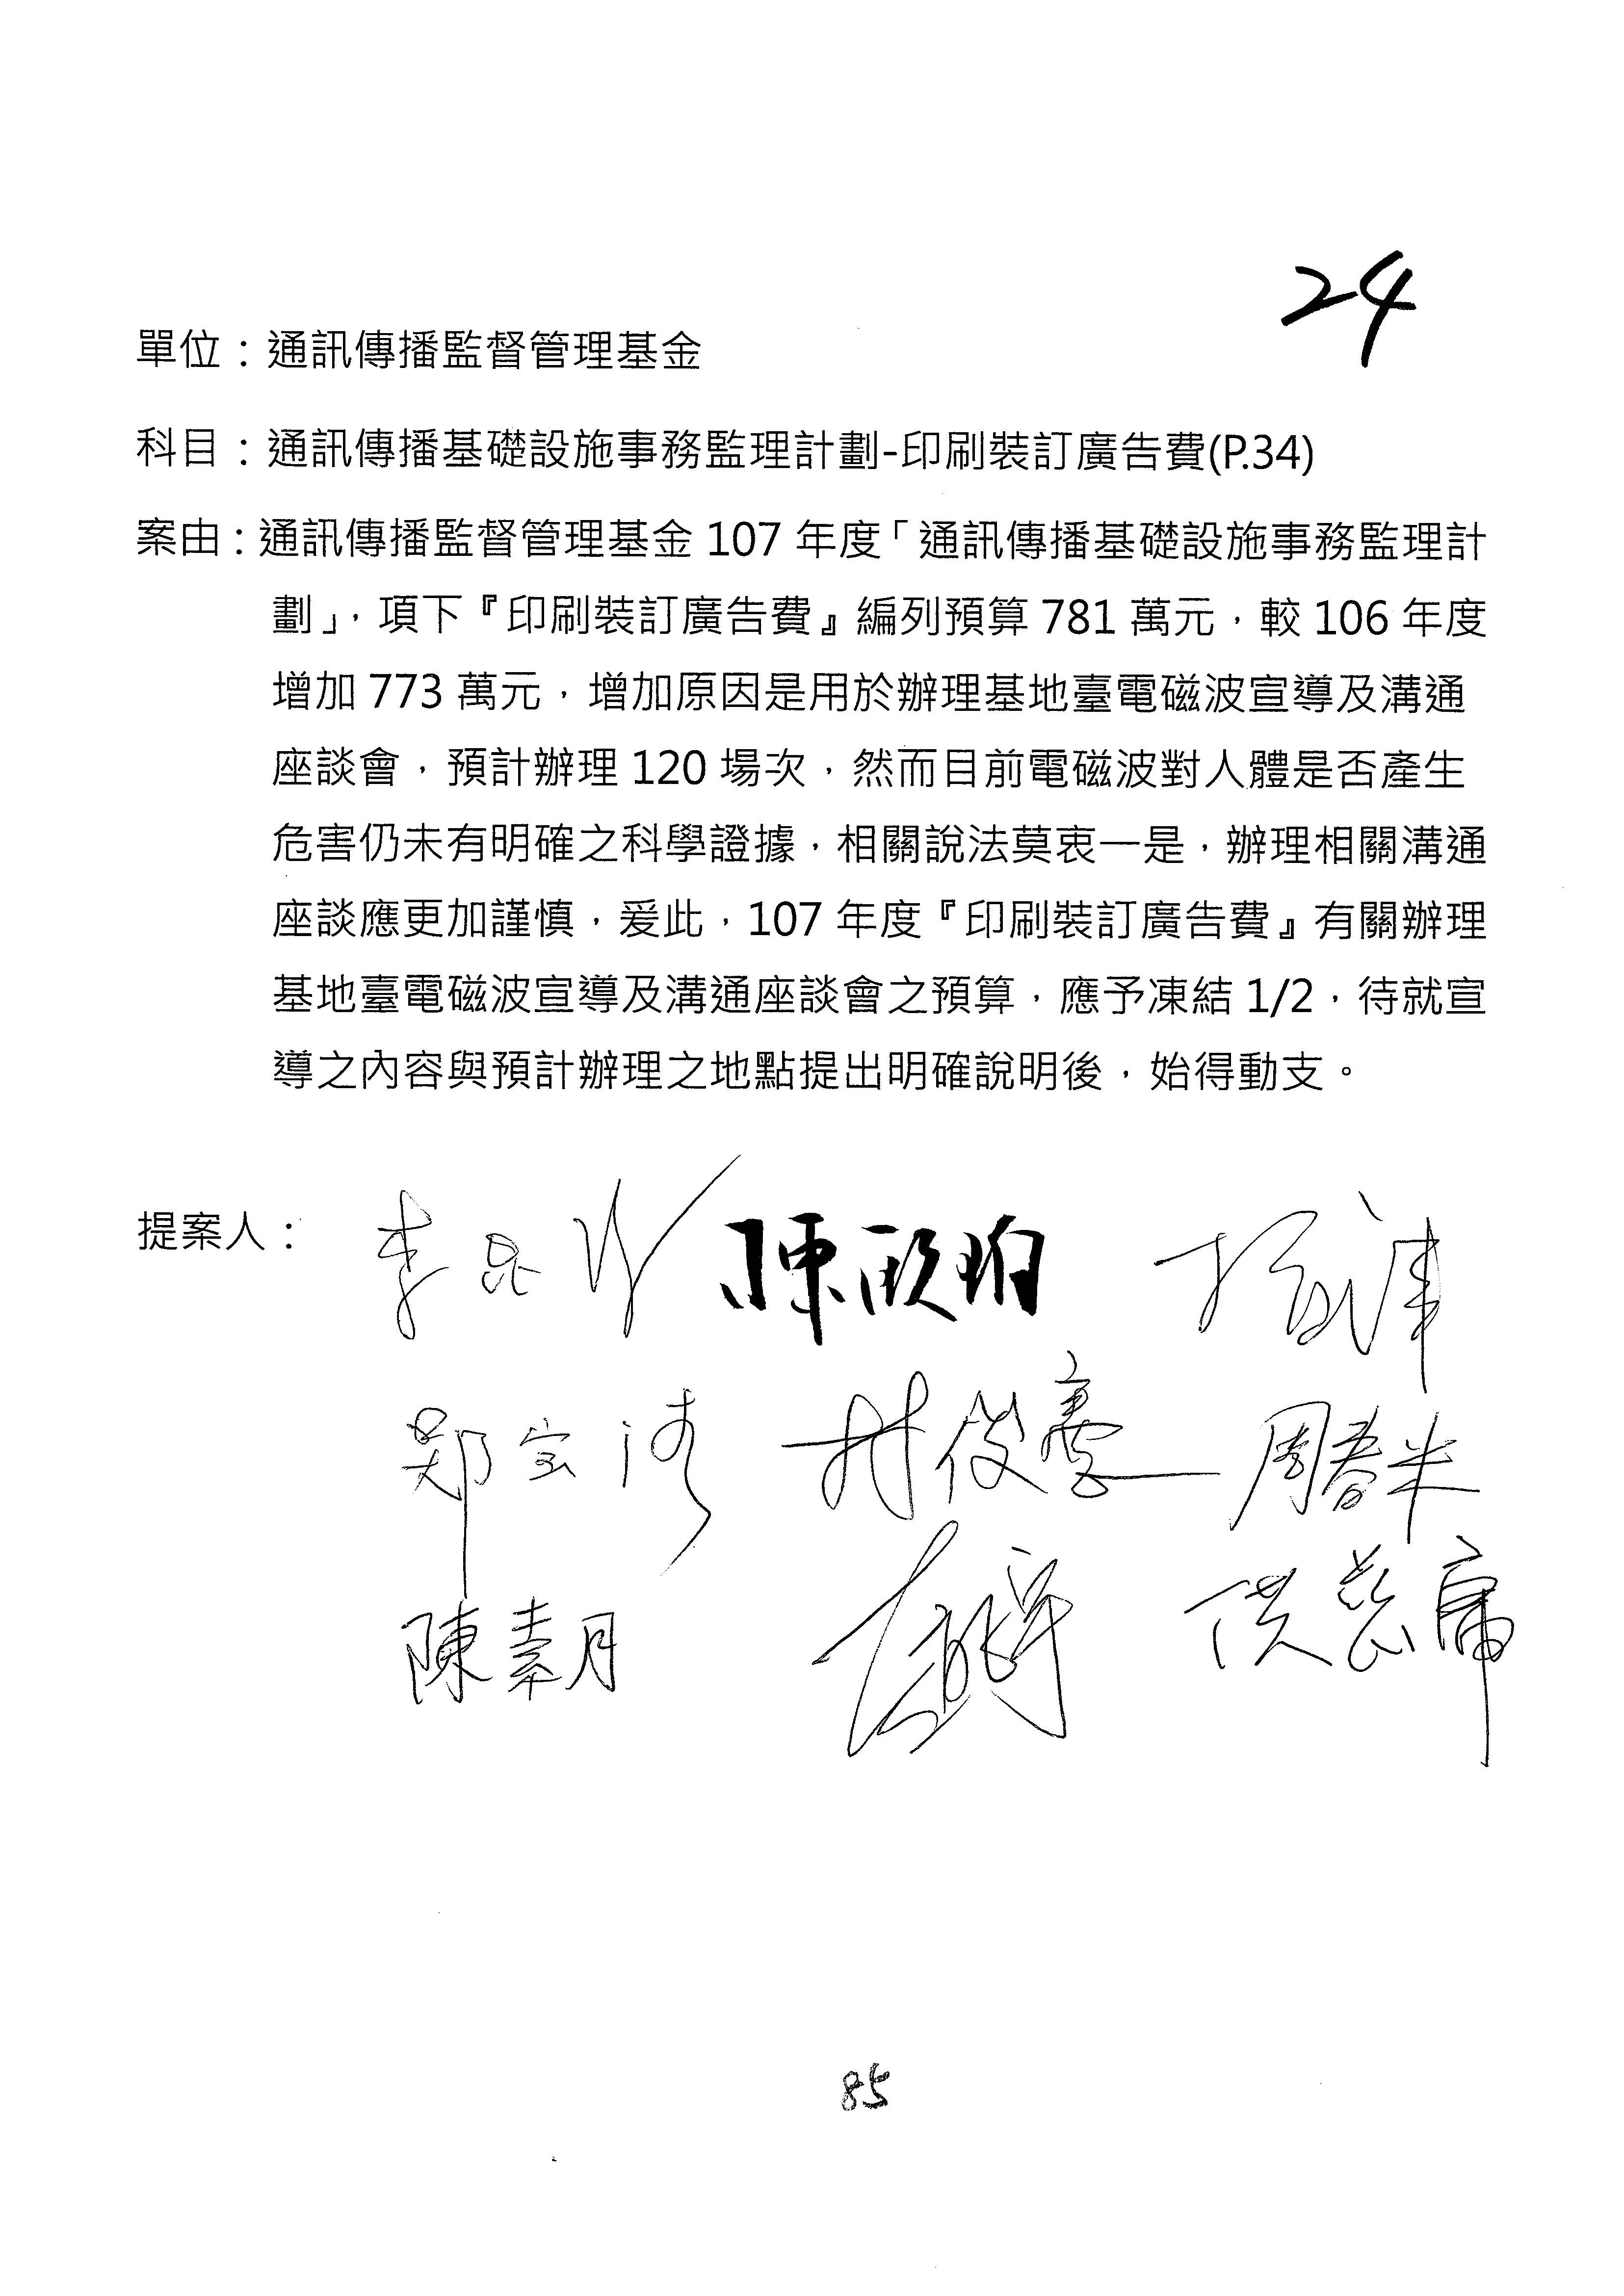 24
單位：通訊傳播監督管理基金
科目：通訊傳播基礎設施事務監理計劃-印刷裝訂廣告費(P.34)
案由：通訊傳播監督管理基金 107 年度「通訊傳播基礎設施事務監理計
劃」，項下『印刷裝訂廣告費』編列預算 781 萬元，較 106 年度
增加 773 萬元，增加原因是用於辦理基地臺電磁波宣導及溝通
座談會，預計辦理 120 場次，然而目前電磁波對人體是否產生
危害仍未有明確之科學證據，相關說法莫衷一是，辦理相關溝通
座談應更加謹慎，爰此，107 年度『印刷裝訂廣告費』有關辦理
基地臺電磁波宣導及溝通座談會之預算，應予凍結 1/2，待就宣
導之內容與預計辦理之地點提出明確說明後，始得動支。
提案人： 李昆澤 陳歐珀
鄭宝清 林俊憲 周春米
陳素月 洪慈庸
85